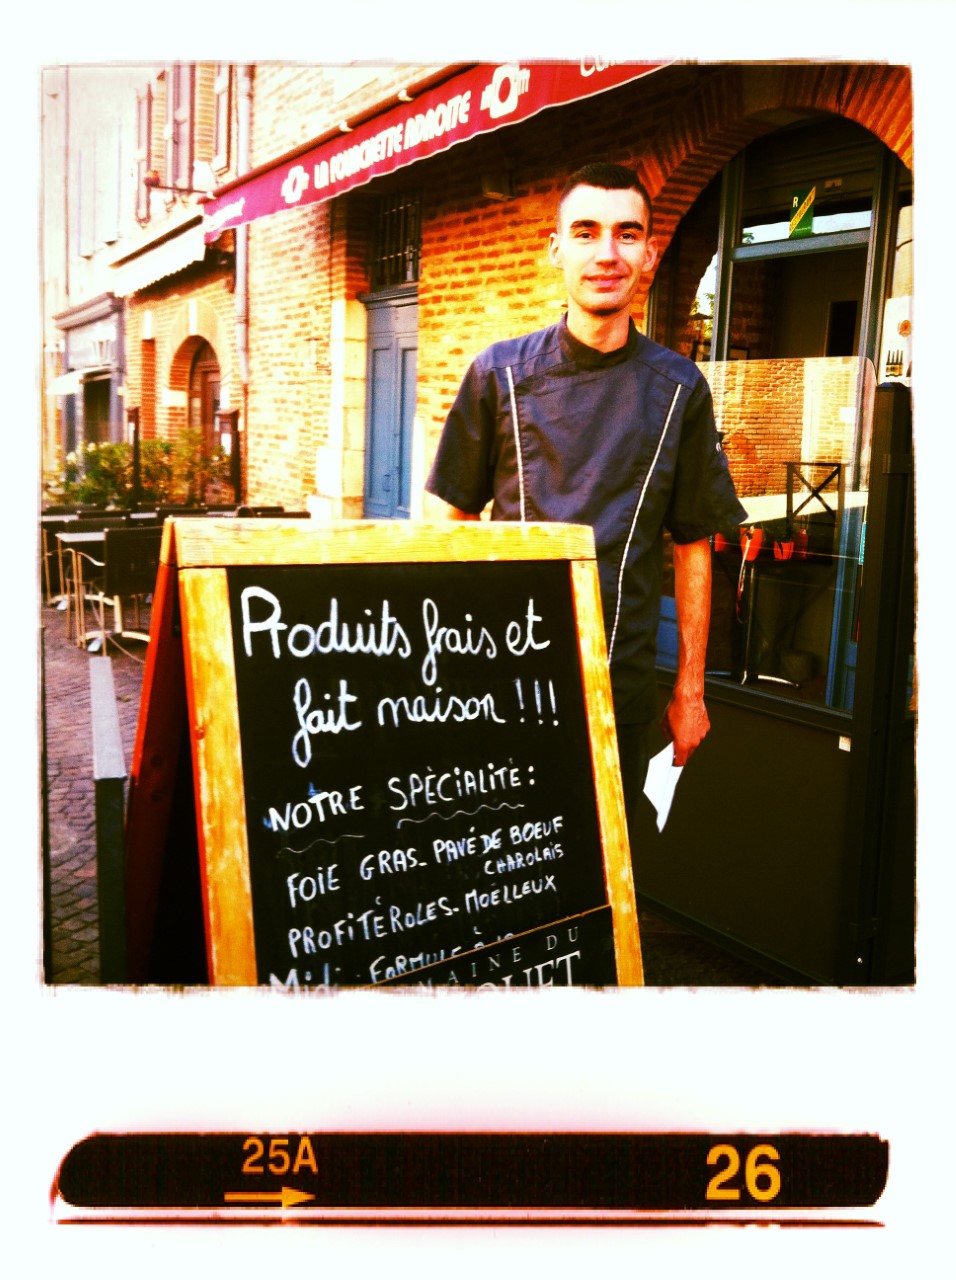 LA FOURCHETTE ADROITE
Produits frais et
fait maison !!!
NOTRE SPÈCIALITÉ:
FOIE GRAS_ PAVÉ DE BOEUF
CHAROLAIS
PROFITÉROLES_MOËLLEUX
Midi FORMULE
DU
25A
26